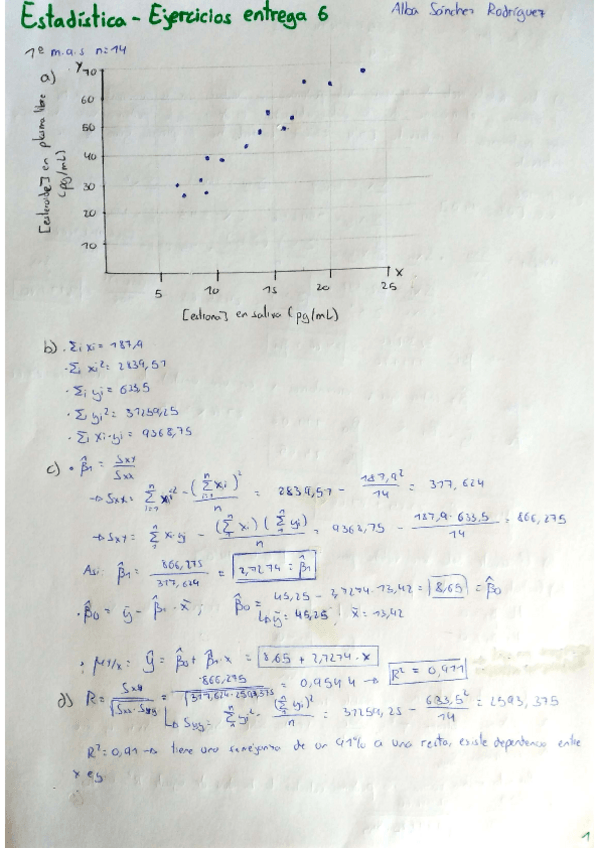 Estadística - Ejercicios entrega 6
Alba Sánchez Rodríguez
1º m.a.s n=14
a)
y
70
60
50
40
30
20
10
[esteroides] en plasma libre (pg/mL)
5 10 15 20 25 x
[estriona] en saliva (pg/mL)
b) · Σi xi = 187,9
· Σi xi² = 2839,51
· Σi yi = 633,5
· Σi yi² = 31259,25
· Σi xi·yi = 9368,75
c) · β̂1 = Sxy / Sxx
→ Sxx = Σ xi² - (Σ xi)² / n = 2839,51 - 187,9² / 14 = 317,624
→ Sxy = Σ xi·yi - (Σ xi)(Σ yi) / n = 9368,75 - 187,9·633,5 / 14 = 866,275
Así: β̂1 = 866,275 / 317,624 = 2,7274 = β̂1
· β̂0 = ȳ - β̂1·x̄; β̂0 = 45,25 - 2,7274·13,42 = 8,65 = β̂0
↳ ȳ = 45,25; x̄ = 13,42
: μY/x = ŷ = β̂0 + β̂1·x = 8,65 + 2,7274·x
d) R = Sxy / √(Sxx·Syy) = 866,275 / √(317,624·2593,375) = 0,9544 → R² = 0,911
↳ Syy = Σ yi² - (Σ yi)² / n = 31259,25 - 633,5² / 14 = 2593,375
R² = 0,91 → tiene una semejanza de un 91% a una recta, existe dependencia entre
x e y
1